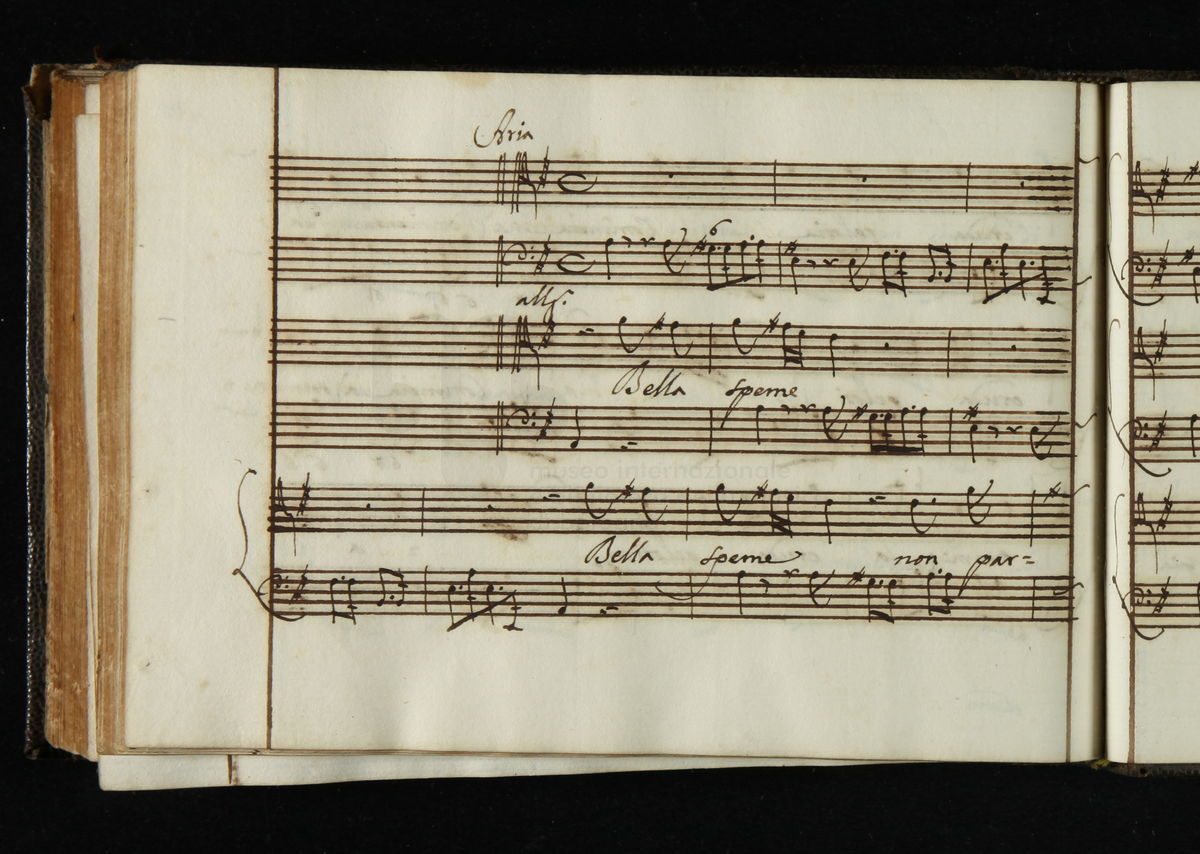 Aria
6
all.º
Bella speme
museo internazionale
Bella speme non par=